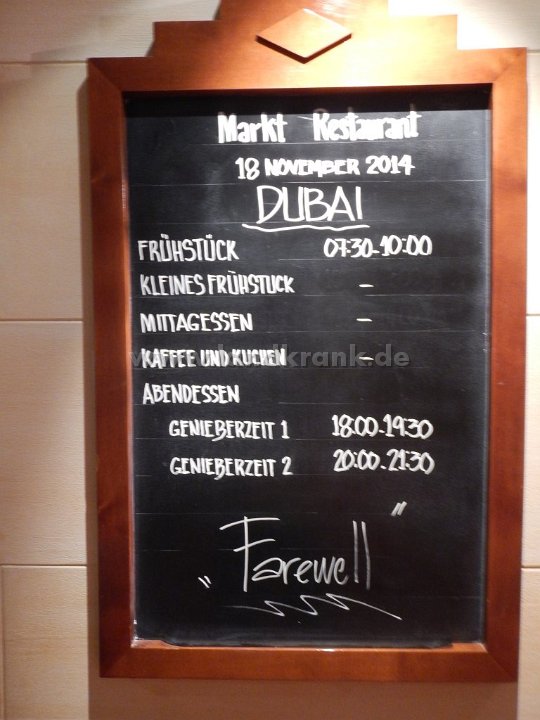 Markt Restaurant
18 NOVEMBER 2014
DUBAI
FRÜHSTÜCK 07:30-10:00
KLEINES FRÜHSTUCK -
MITTAGESSEN -
KAFFEE UND KUCHEN -
ABENDESSEN
GENIEßERZEIT 1 18:00-19:30
GENIEßERZEIT 2 20:00-21:30
„Farewell"